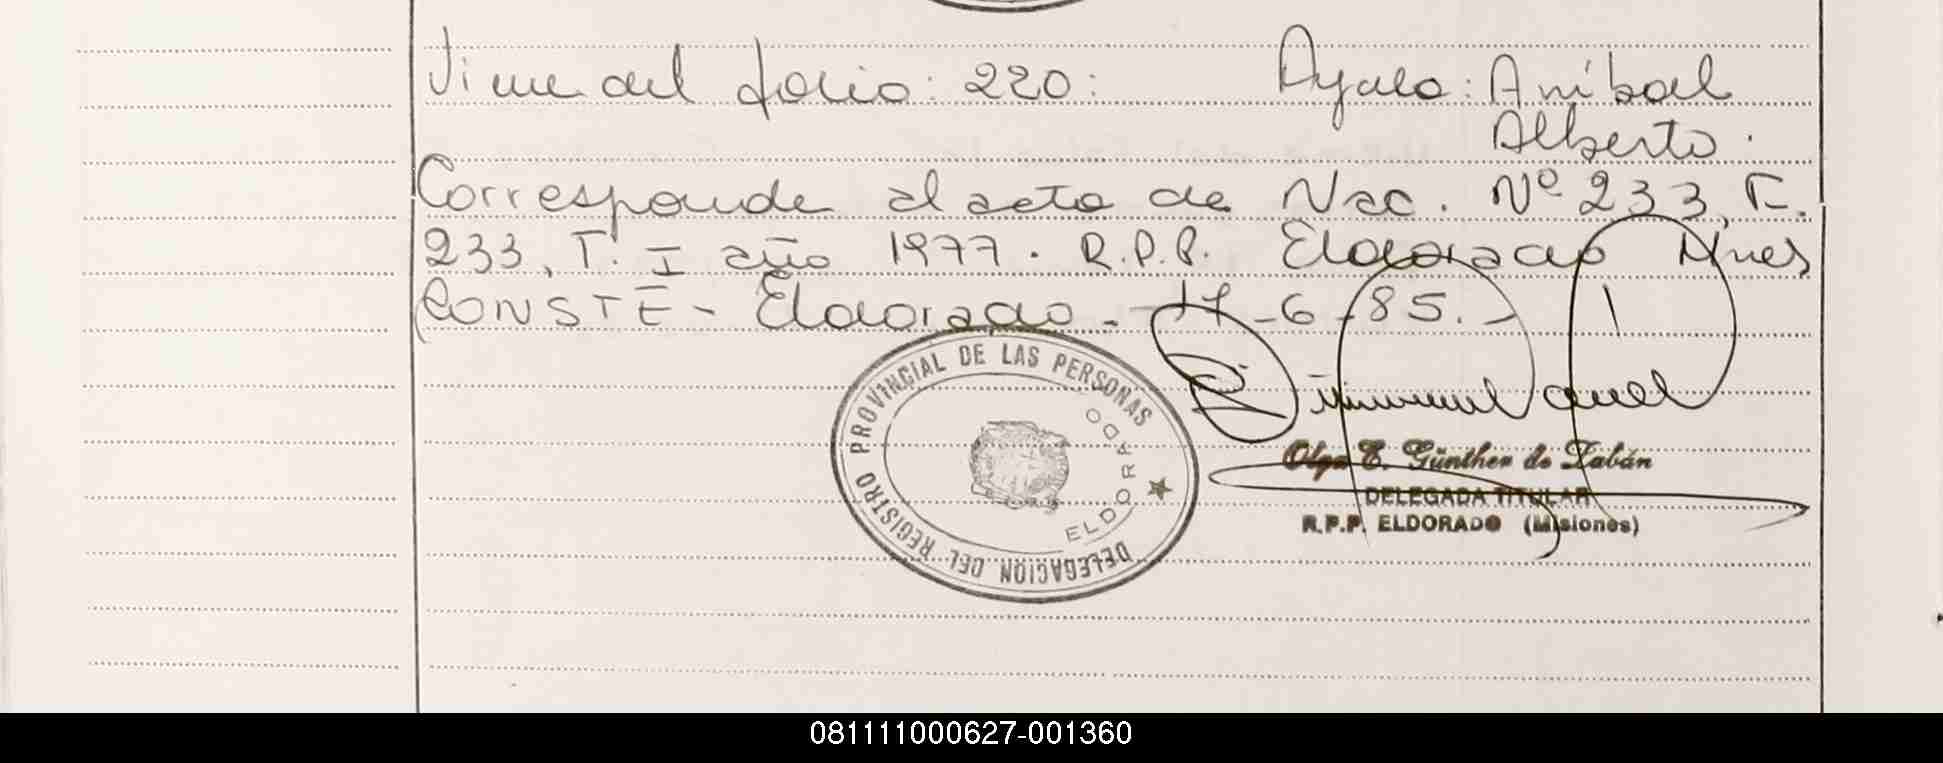 Viene del folio: 220: Ayala: Aníbal
Alberto.
Corresponde al acta de Nac. Nº 233, F.
233, T. I año 1977. R.P.P. Eldorado Mnes
CONSTE - Eldorado. 17-6-85.-
DELEGACION DEL REGISTRO PROVINCIAL DE LAS PERSONAS
ELDORADO
Olga E. Günther de Zabán
DELEGADA TITULAR
R.P.P. ELDORADO (Misiones)
081111000627-001360